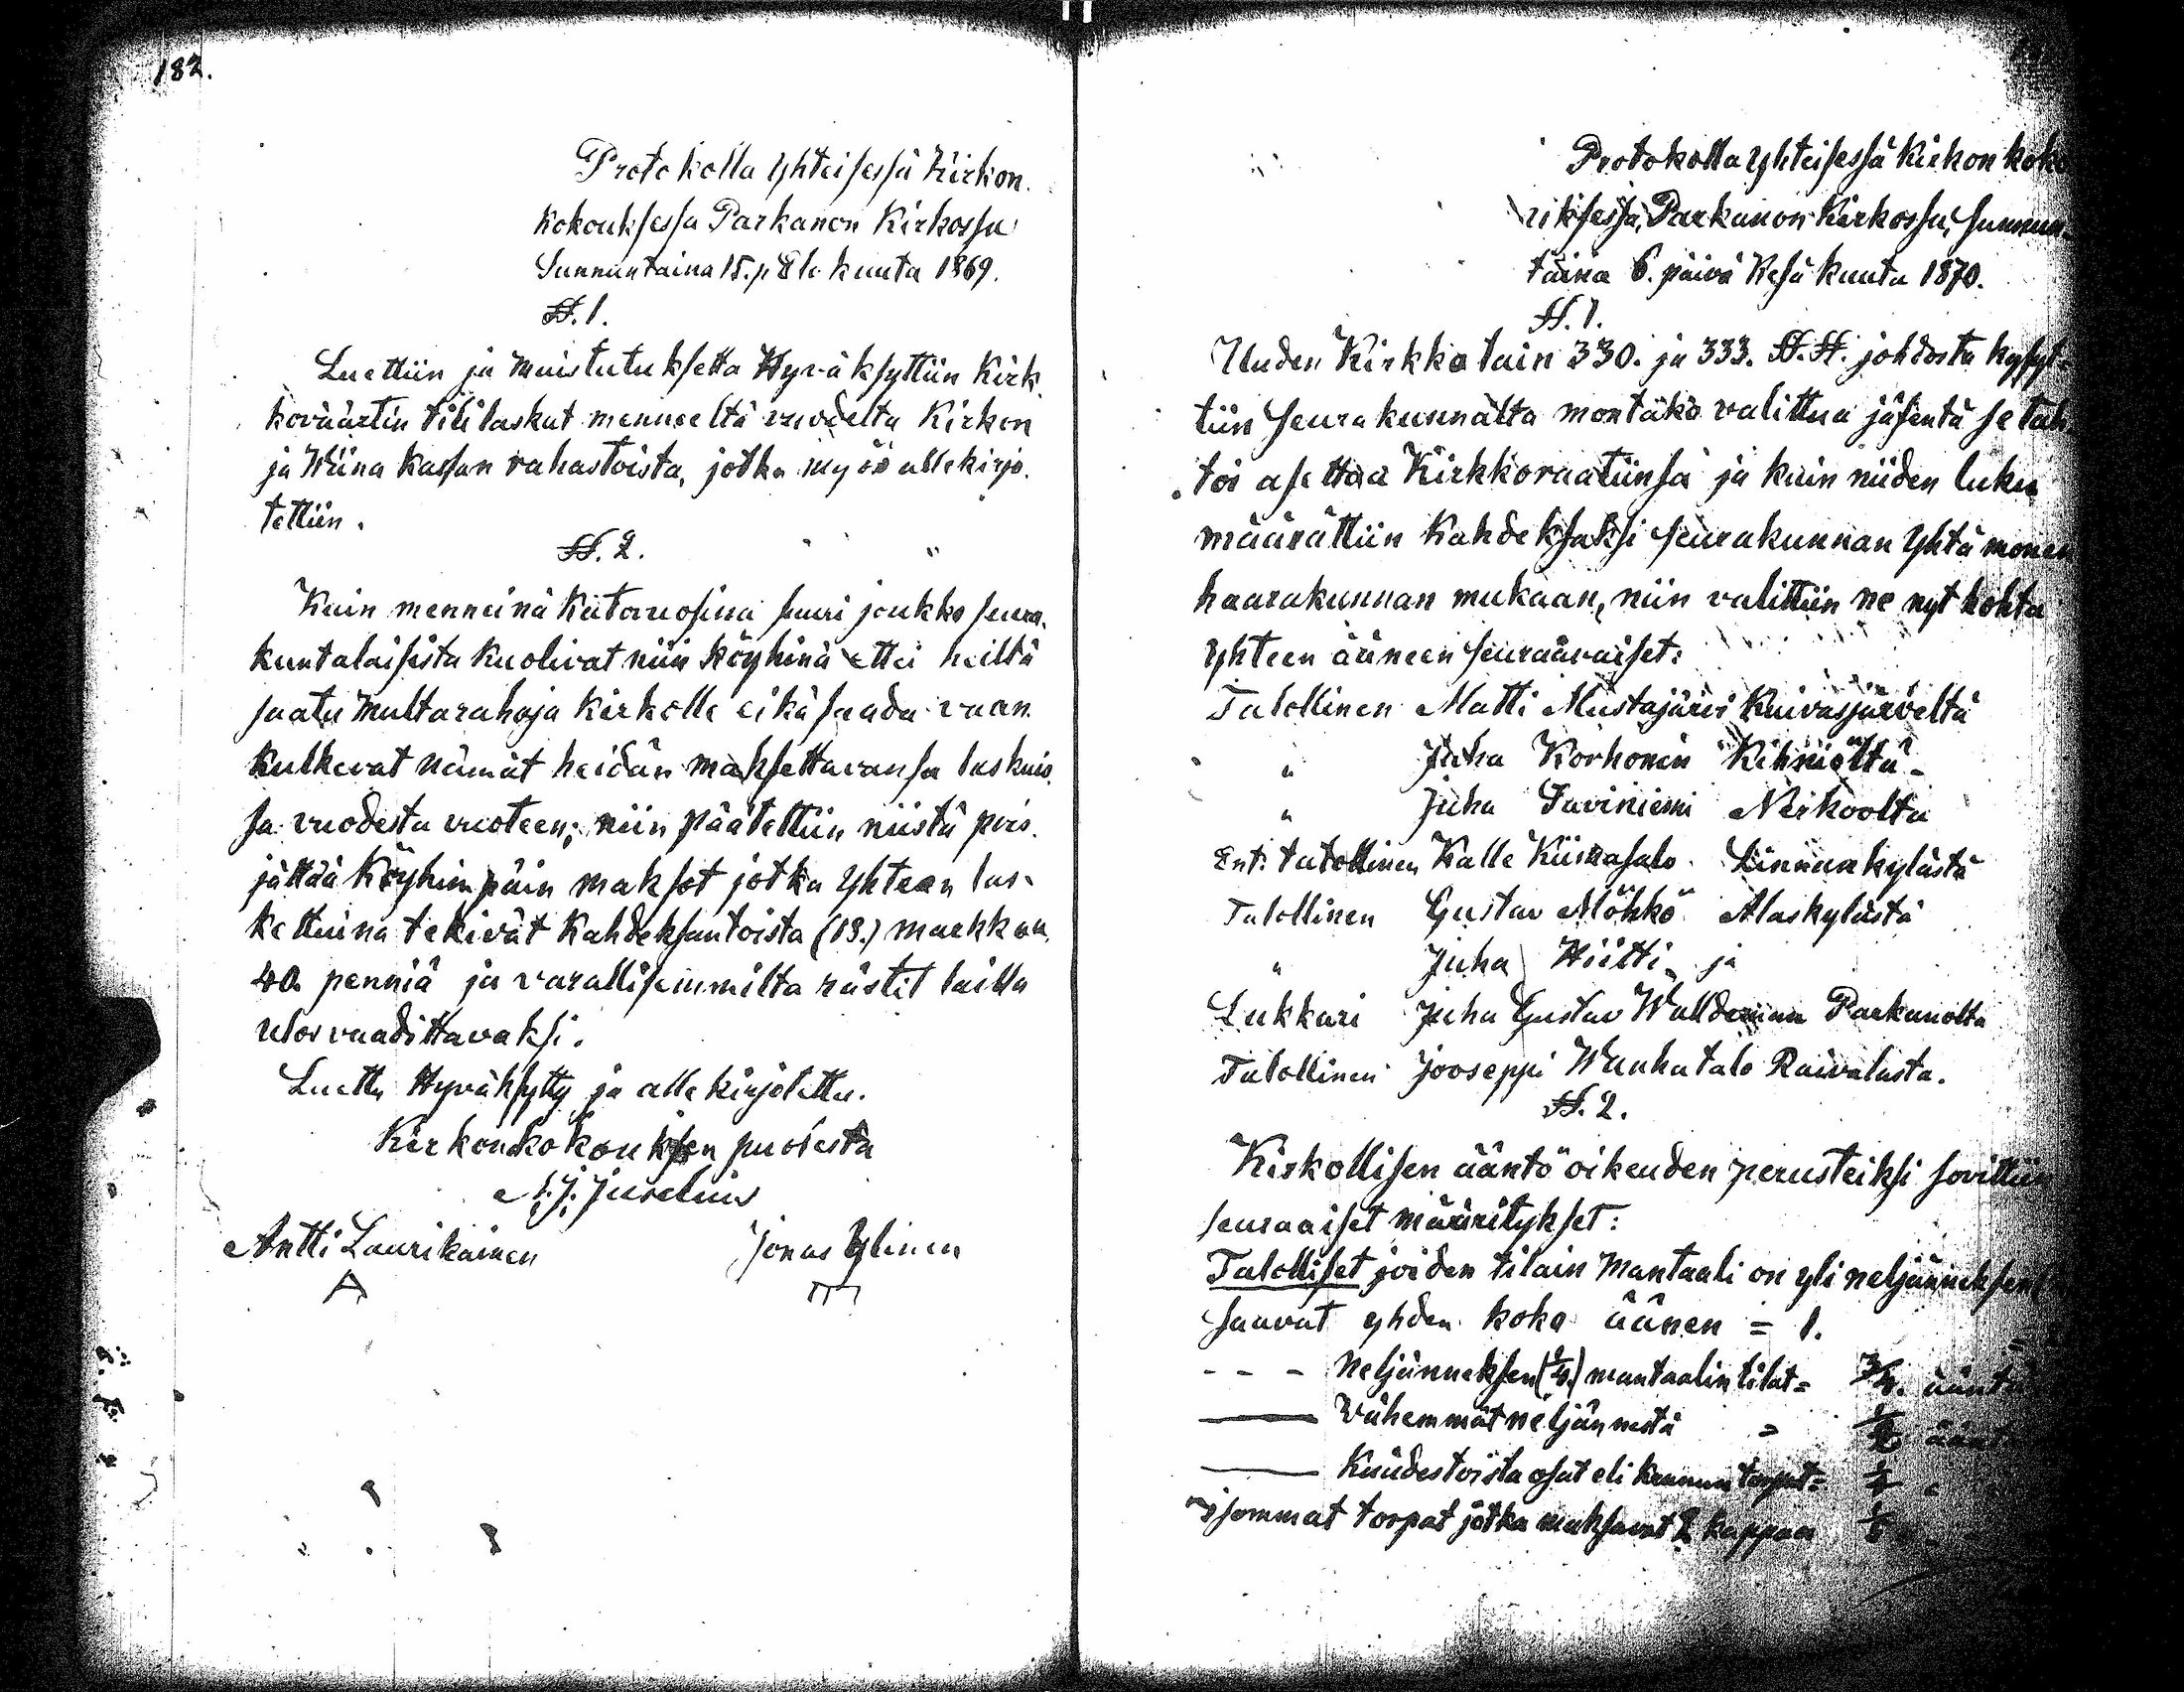 182.
Protokolla Yhteisessä Kirkon
kokouksessa Parkanon Kirkossa
Sunnuntaina 15. p Elokuuta 1869.
§§. 1.
Luettiin ja muistutuksetta Hyväksyttiin Kirk
koväärtin tililaskut menneeltä vuodelta Kirkon
ja Wiina Kassan rahastoista, jotka myös allekirjo.
tettiin.
§§. 2.
Kuin menneinä Katovuosina suuri joukko seura.
kuntalaisista Kuolivat niin Köyhinä ettei heiltä
saatu Multarahoja Kirkolle eikä saada vaan
Kulkevat nämät heidän maksettavansa laskuis.
sa vuodesta vuoteen; niin päätettiin niistä pois.
jättää Köyhimpäin maksot jotka Yhteen las-
kettuina tekivät Kahdeksantoista (18.) markkaa
40. penniä ja varallisemmilta rästit lailla
ulosvaadittavaksi.
Luettu Hyväksytty ja allekirjoitettu.
Kirkonkokouksen puolesta
Juselius
Antti Laurikainen Jonas Ylinen
Protokolla Yhteisessä Kirkon koko
uksessa, Parkanon Kirkossa, Sunnun-
taina 6. päivä Kesäkuuta 1870.
§§. 1.
Uuden Kirkkolain 330. ja 333. §§.§§. johdosta kysyt-
tiin Seurakunnalta montako valittua jäsentä se tah
toi asettaa Kirkkoraatiinsa ja kuin niiden luku
määrättiin Kahdeksaksi seurakunnan Yhtä monen
haarakunnan mukaan, niin valittiin ne nyt kohta
Yhteen ääneen seuraavaiset:
Talollinen Matti Mustajärvi Kuivasjärveltä
" Juha Korhonen Kihniöltä
" Juha Saviniemi Nerkoolta
Ent. talollinen Kalle Kiiskasalo Linnankylästä
Talollinen Gustav Möhkö Alaskylästä
" Juha Hiitti ja
Lukkari Juha Gustav Parkanolta
Talollinen Jooseppi Wanhatalo Raivalasta.
§§. 2.
Kirkollisen ääntöoikeuden perusteiksi sovittiin
seuraaiset määritykset:
Talolliset joiden tilain Mantaali on yli neljänneksen
saavat yhden koko äänen = 1.
- - - Neljänneksen (1/4.) mantaalin tilat = 3/4. ääntä
—— Vähemmät neljännestä = 1/2 ääntä
—— Kuudestoista osat eli Kruunun torpat =
isommat torpat jotka maksavat 2 kappaa